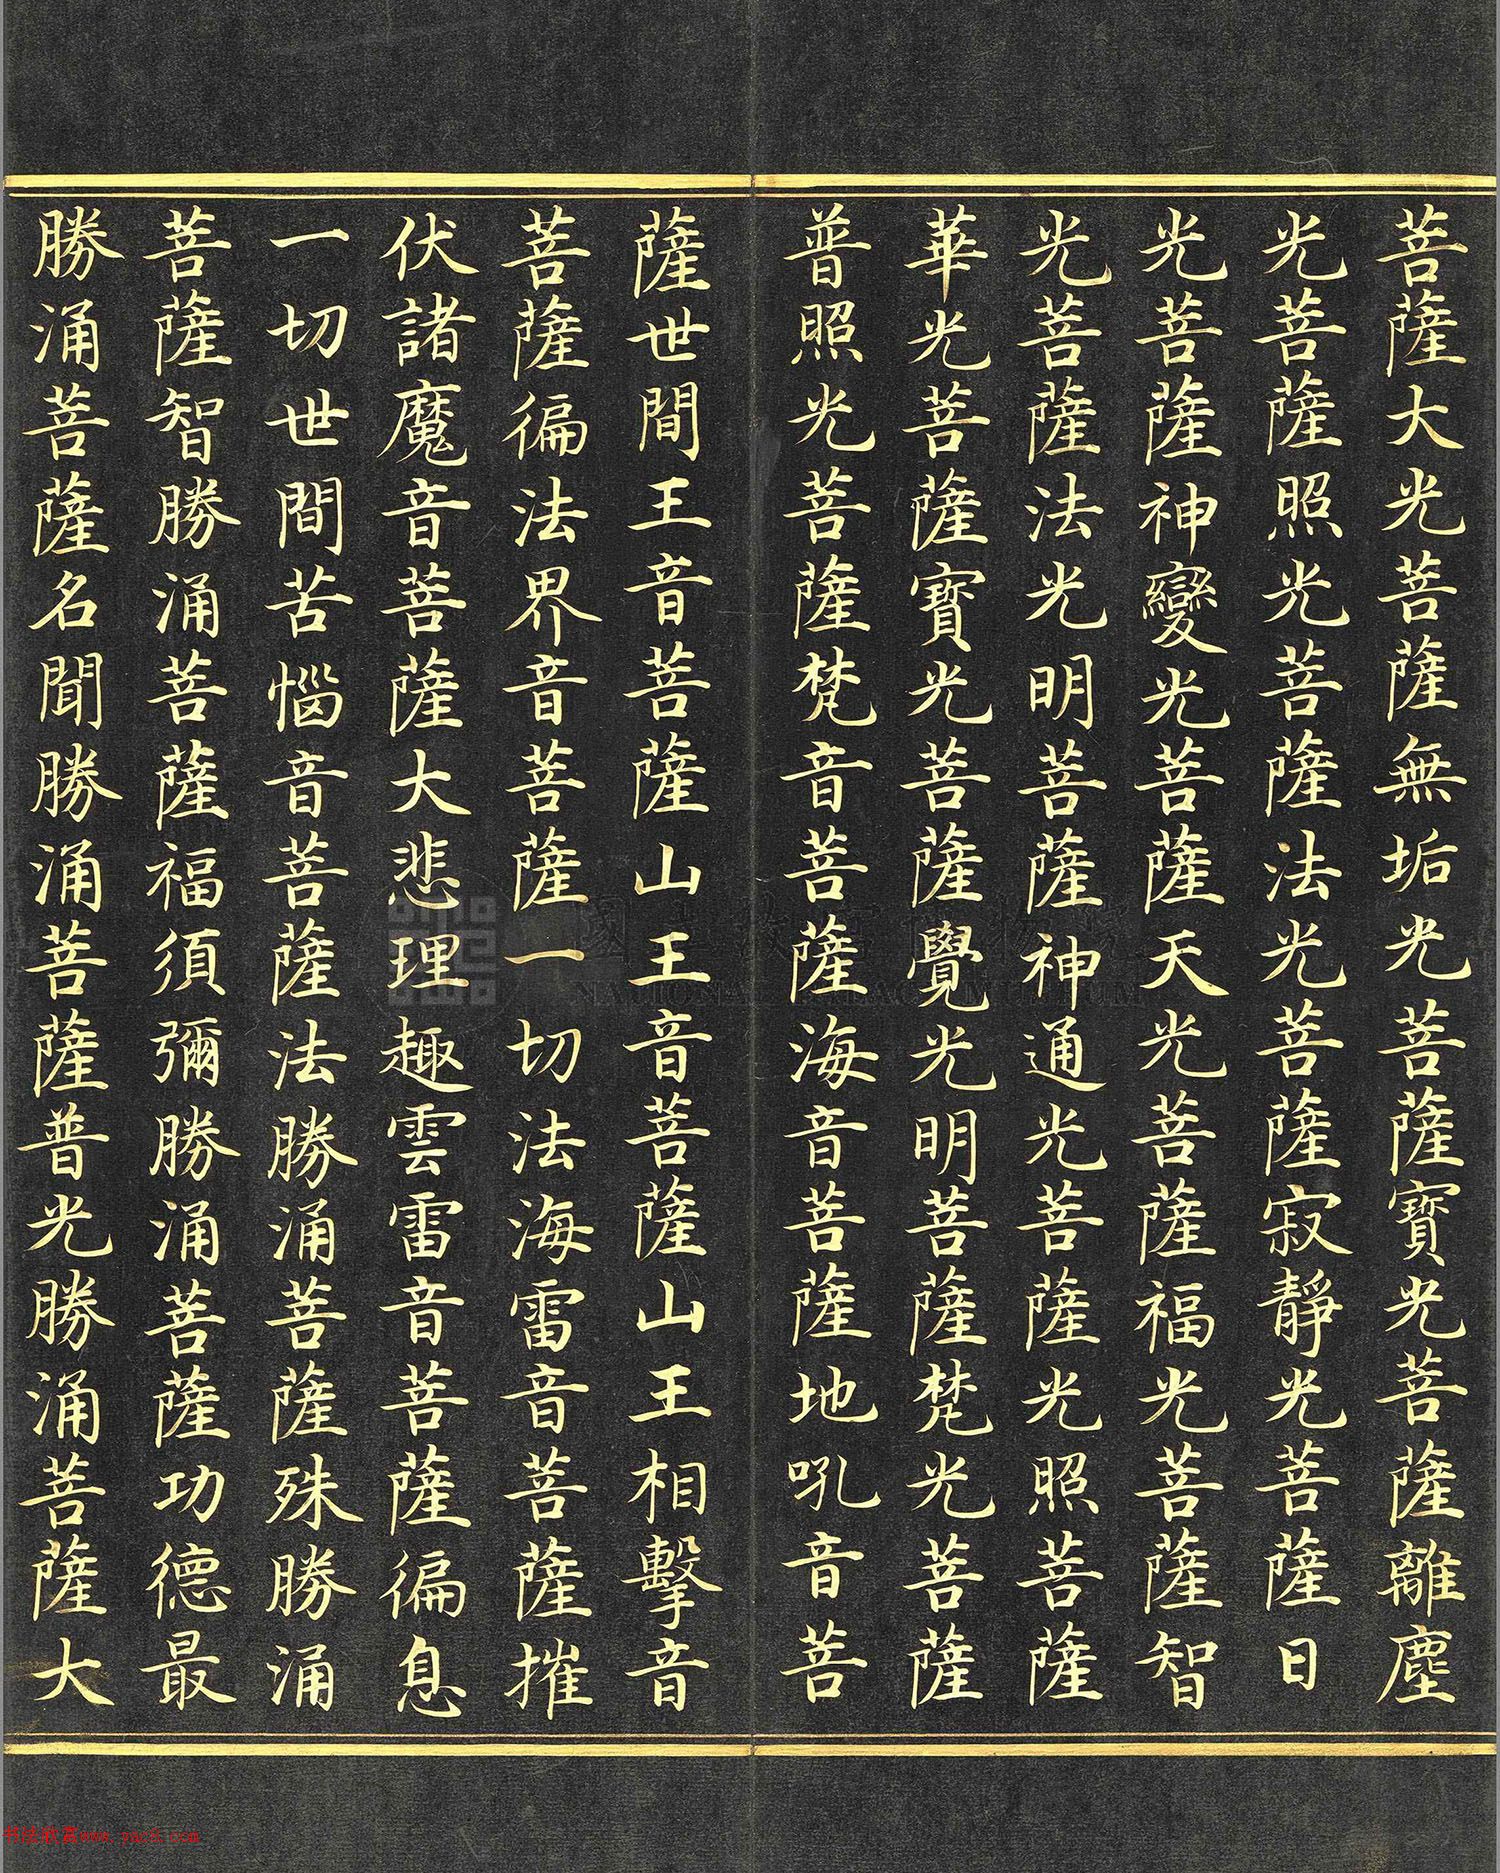 菩薩大光菩薩無垢光菩薩寶光菩薩離塵
光菩薩照光菩薩法光菩薩寂靜光菩薩日
光菩薩神變光菩薩天光菩薩福光菩薩智
光菩薩法光明菩薩神通光菩薩光照菩薩
華光菩薩寶光菩薩覺光明菩薩梵光菩薩
普照光菩薩梵音菩薩海音菩薩地吼音菩
薩世間王音菩薩山王音菩薩山王相擊音
菩薩徧法界音菩薩一切法海雷音菩薩摧
伏諸魔音菩薩大悲理趣雲雷音菩薩徧息
一切世間苦惱音菩薩法勝涌菩薩殊勝涌
菩薩智勝涌菩薩福須彌勝涌菩薩功德最
勝涌菩薩名聞勝涌菩薩普光勝涌菩薩大
NATIONAL PALACE MUSEUM
书法欣赏www.yac8.com